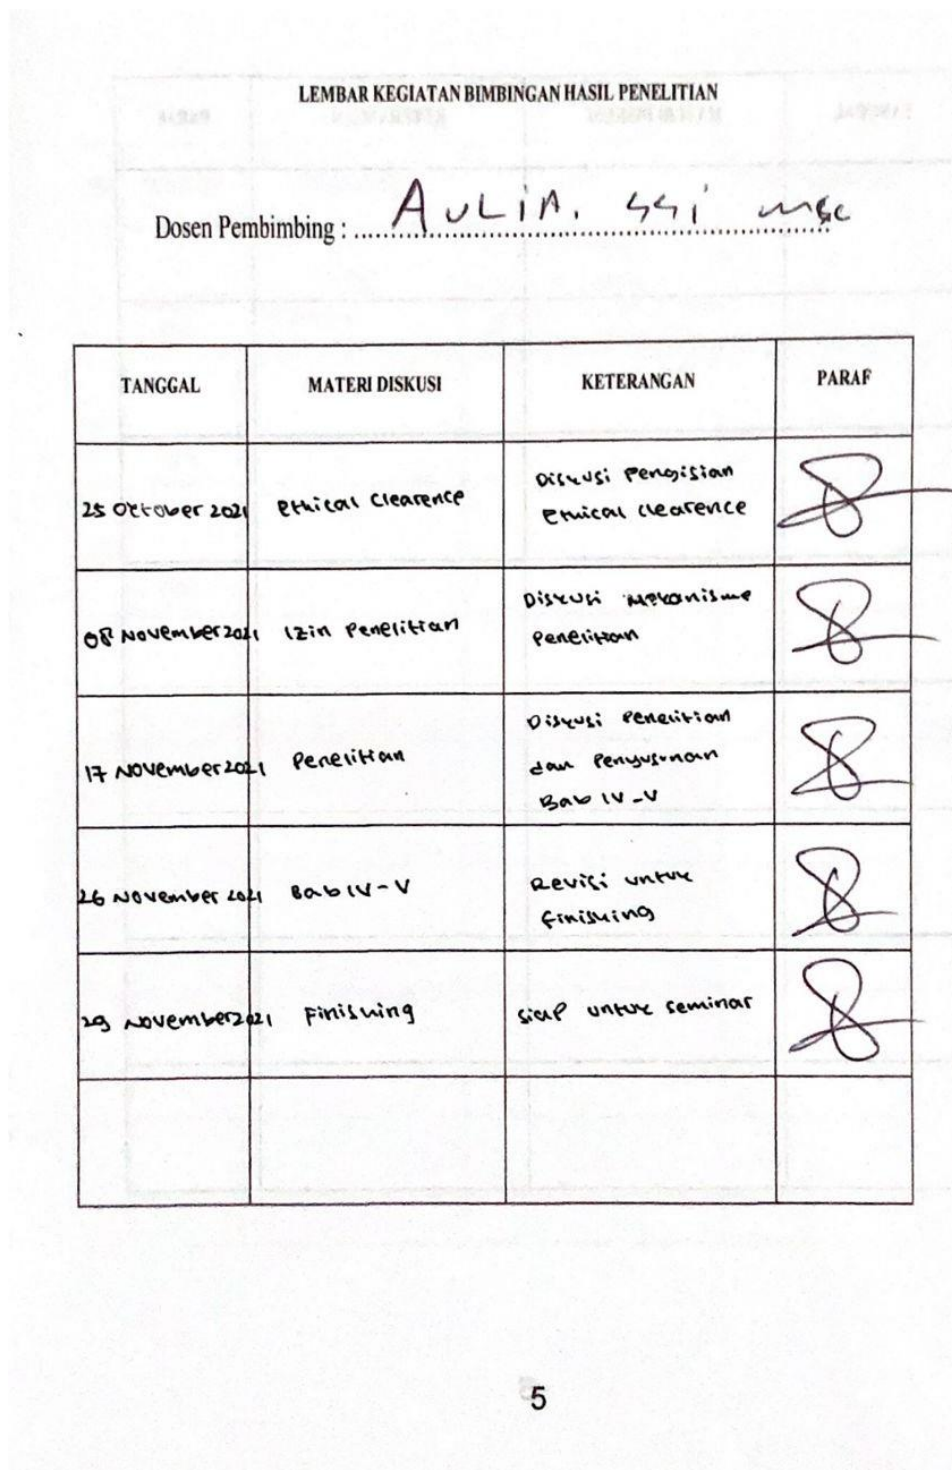 LEMBAR KEGIATAN BIMBINGAN HASIL PENELITIAN
Dosen Pembimbing : AULIA. SSi MSc
TANGGAL MATERI DISKUSI KETERANGAN PARAF
25 Oktober 2021 Ethical Clearence Diskusi Pengisian
Ethical clearence
08 November 2021 Izin Penelitian Diskusi Mekanisme
Penelitian
17 November 2021 Penelitian Diskusi Penelitian
dan Penyusunan
Bab IV-V
26 November 2021 Bab IV-V Revisi untuk
finishing
29 November 2021 Finishing siap untuk seminar
5